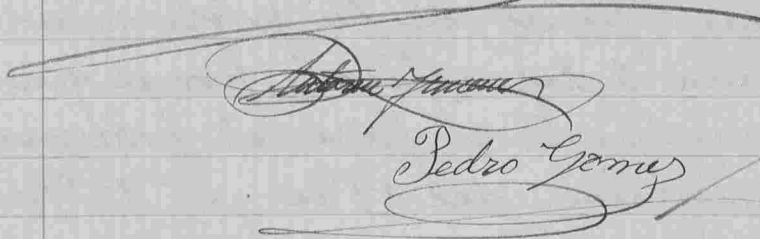 Antonio Jimenez
Pedro Gomez